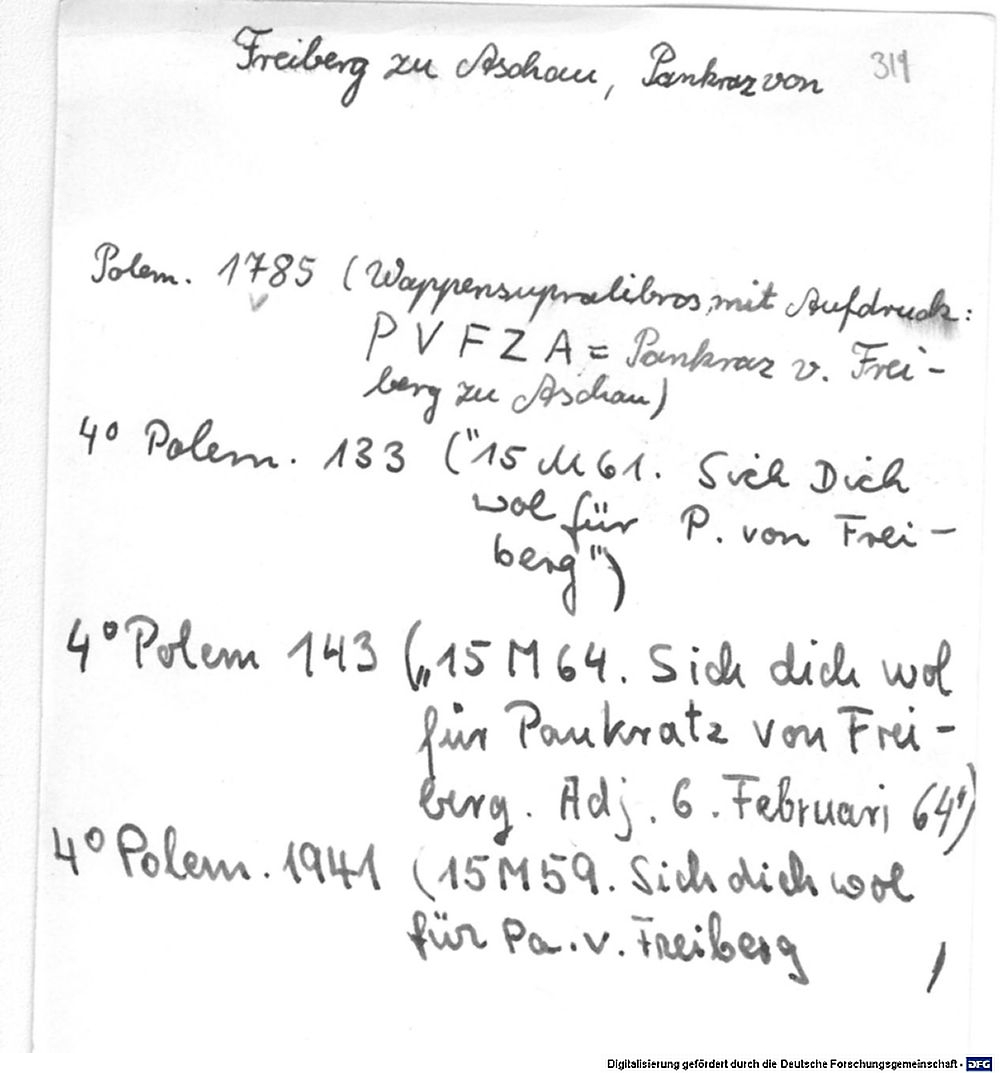 Freiberg zu Aschau, Pankraz von 319
Polem. 1785 (Wappensupralibros mit Aufdruck:
P V F Z A = Pankraz v. Frei-
berg zu Aschau)
4° Polem. 133 ("15 M 61. Sich Dich
wol für P. von Frei-
berg")
4° Polem 143 („15 M 64. Sich dich wol
für Pankratz von Frei-
berg. Adj. 6. Februari 64")
4° Polem. 1941 (15 M 59. Sich dich wol
für Pa. v. Freiberg /
Digitalisierung gefördert durch die Deutsche Forschungsgemeinschaft - DFG